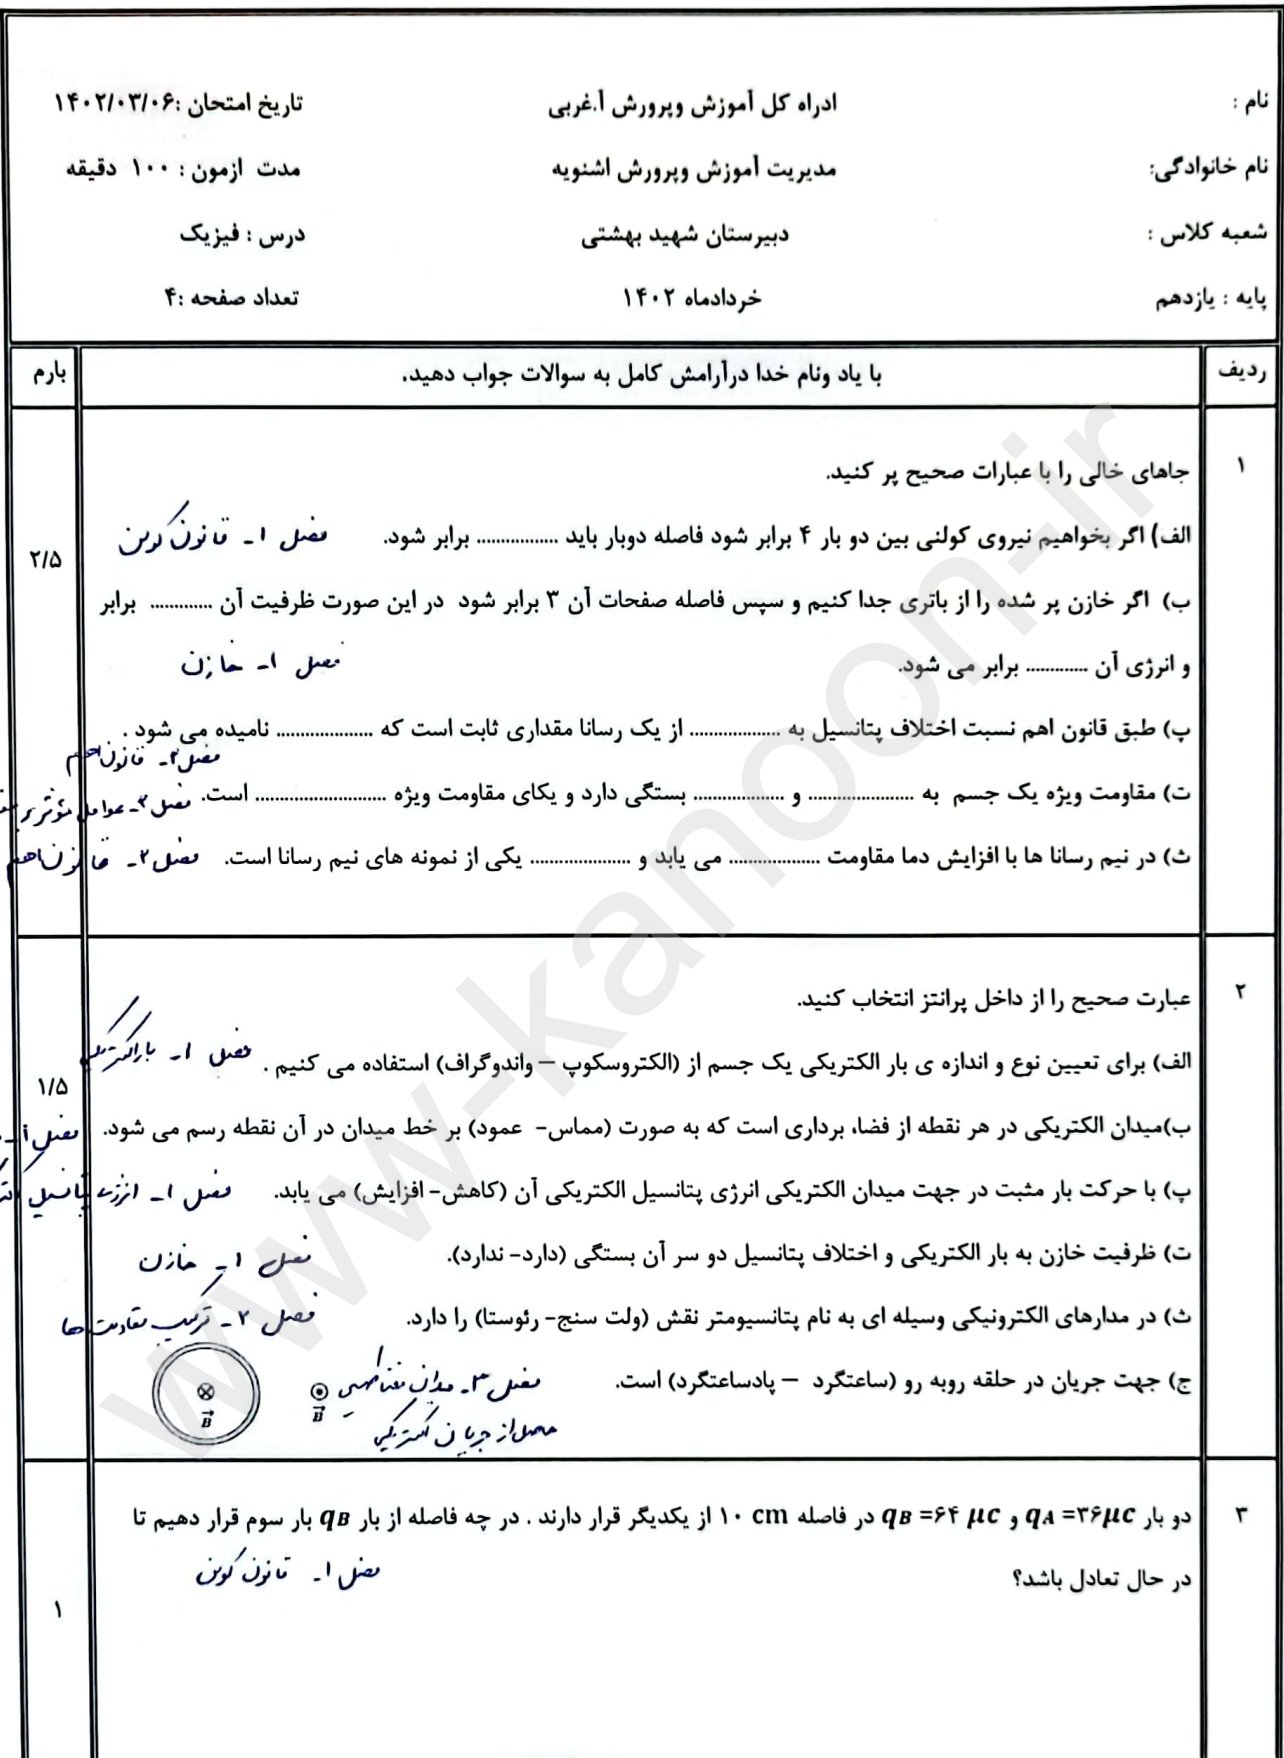 نام :
ادراه کل آموزش وپرورش آ.غربی
تاریخ امتحان :۱۴۰۲/۰۳/۰۶
نام خانوادگی:
مدیریت آموزش وپرورش اشنویه
مدت ازمون : ۱۰۰ دقیقه
شعبه کلاس :
دبیرستان شهید بهشتی
درس : فیزیک
پایه : یازدهم
خردادماه ۱۴۰۲
تعداد صفحه :۴
ردیف
با یاد ونام خدا درآرامش کامل به سوالات جواب دهید.
بارم
۱
جاهای خالی را با عبارات صحیح پر کنید.
الف) اگر بخواهیم نیروی کولنی بین دو بار ۴ برابر شود فاصله دوبار باید ................ برابر شود. فصل ۱ـ قانون کولن
۲/۵
ب) اگر خازن پر شده را از باتری جدا کنیم و سپس فاصله صفحات آن ۳ برابر شود در این صورت ظرفیت آن ............ برابر
و انرژی آن ............ برابر می شود. فصل ۱ـ خازن
پ) طبق قانون اهم نسبت اختلاف پتانسیل به .................. از یک رسانا مقداری ثابت است که ................... نامیده می شود .
فصل ۲ـ قانون اهم
ت) مقاومت ویژه یک جسم به ..................... و .................. بستگی دارد و یکای مقاومت ویژه .......................... است. فصل ۲ـ عوامل مؤثر بر
ث) در نیم رسانا ها با افزایش دما مقاومت .................. می یابد و .................... یکی از نمونه های نیم رسانا است. فصل ۲ـ قانون اهم
۲
عبارت صحیح را از داخل پرانتز انتخاب کنید.
الف) برای تعیین نوع و اندازه ی بار الکتریکی یک جسم از (الکتروسکوپ – واندوگراف) استفاده می کنیم . فصل ۱ـ بار الکتریکی
۱/۵
ب)میدان الکتریکی در هر نقطه از فضا، برداری است که به صورت (مماس- عمود) بر خط میدان در آن نقطه رسم می شود. فصل ۱ـ
پ) با حرکت بار مثبت در جهت میدان الکتریکی انرژی پتانسیل الکتریکی آن (کاهش- افزایش) می یابد. فصل ۱ـ انرژی پتانسیل
ت) ظرفیت خازن به بار الکتریکی و اختلاف پتانسیل دو سر آن بستگی (دارد- ندارد). فصل ۱ـ خازن
ث) در مدارهای الکترونیکی وسیله ای به نام پتانسیومتر نقش (ولت سنج- رئوستا) را دارد. فصل ۲ـ ترکیب مقاومت ها
ج) جهت جریان در حلقه روبه رو (ساعتگرد – پادساعتگرد) است. فصل ۳ـ میدان مغناطیسی
حاصل از جریان الکتریکی
B
B
۳
دو بار qA =۳۶μc و qB =۶۴ μc در فاصله ۱۰ cm از یکدیگر قرار دارند . در چه فاصله از بار qB بار سوم قرار دهیم تا
در حال تعادل باشد؟ فصل ۱ـ قانون کولن
۱
www-kanoon-ir